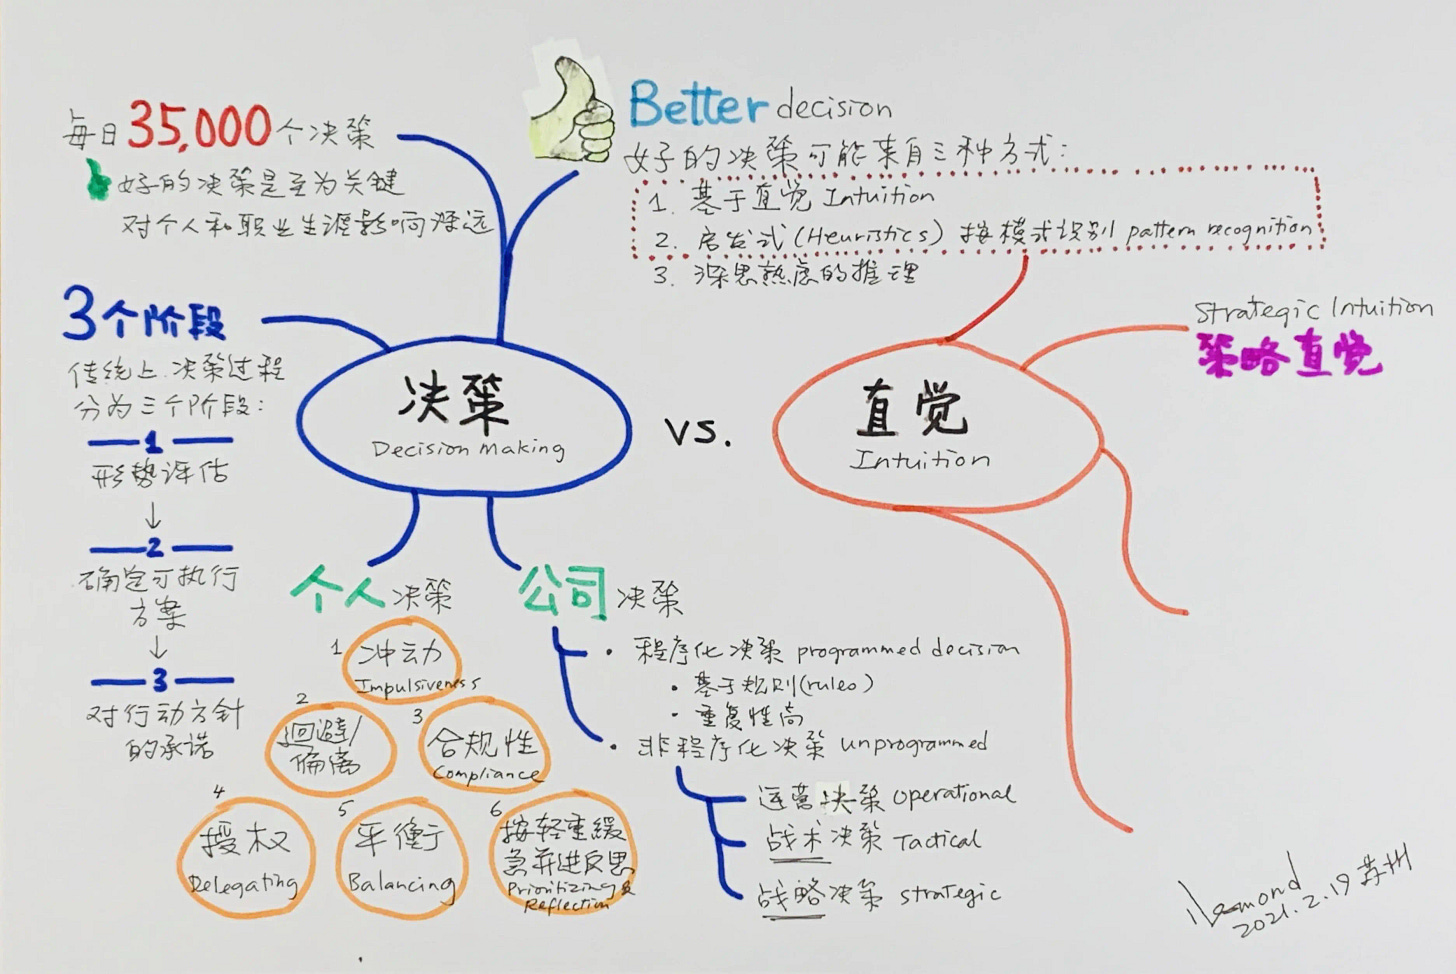 每日35,000个决策
好的决策是至为关键
对个人和职业生涯影响深远
Better decision
好的决策可能来自三种方式:
1. 基于直觉 Intuition
2. 启发式(Heuristics) 按模式识别 pattern recognition
3. 深思熟虑的推理
3个阶段
传统上决策过程
分为三个阶段:
1
形势评估
↓
2
确定可执行
方案
↓
3
对行动方针
的承诺
决策
Decision Making
vs.
直觉
Intuition
Strategic Intuition
策略直觉
个人决策
1 冲动
Impulsiveness
2 回避/
偏离
3 合规性
Compliance
4 授权
Delegating
5 平衡
Balancing
6 按轻重缓
急并进反思
Prioritizing &
Reflection
公司决策
• 程序化决策 programmed decision
• 基于规则(rules)
• 重复性高
• 非程序化决策 unprogrammed
运营决策 operational
战术决策 Tactical
战略决策 strategic
2021.2.19 苏州